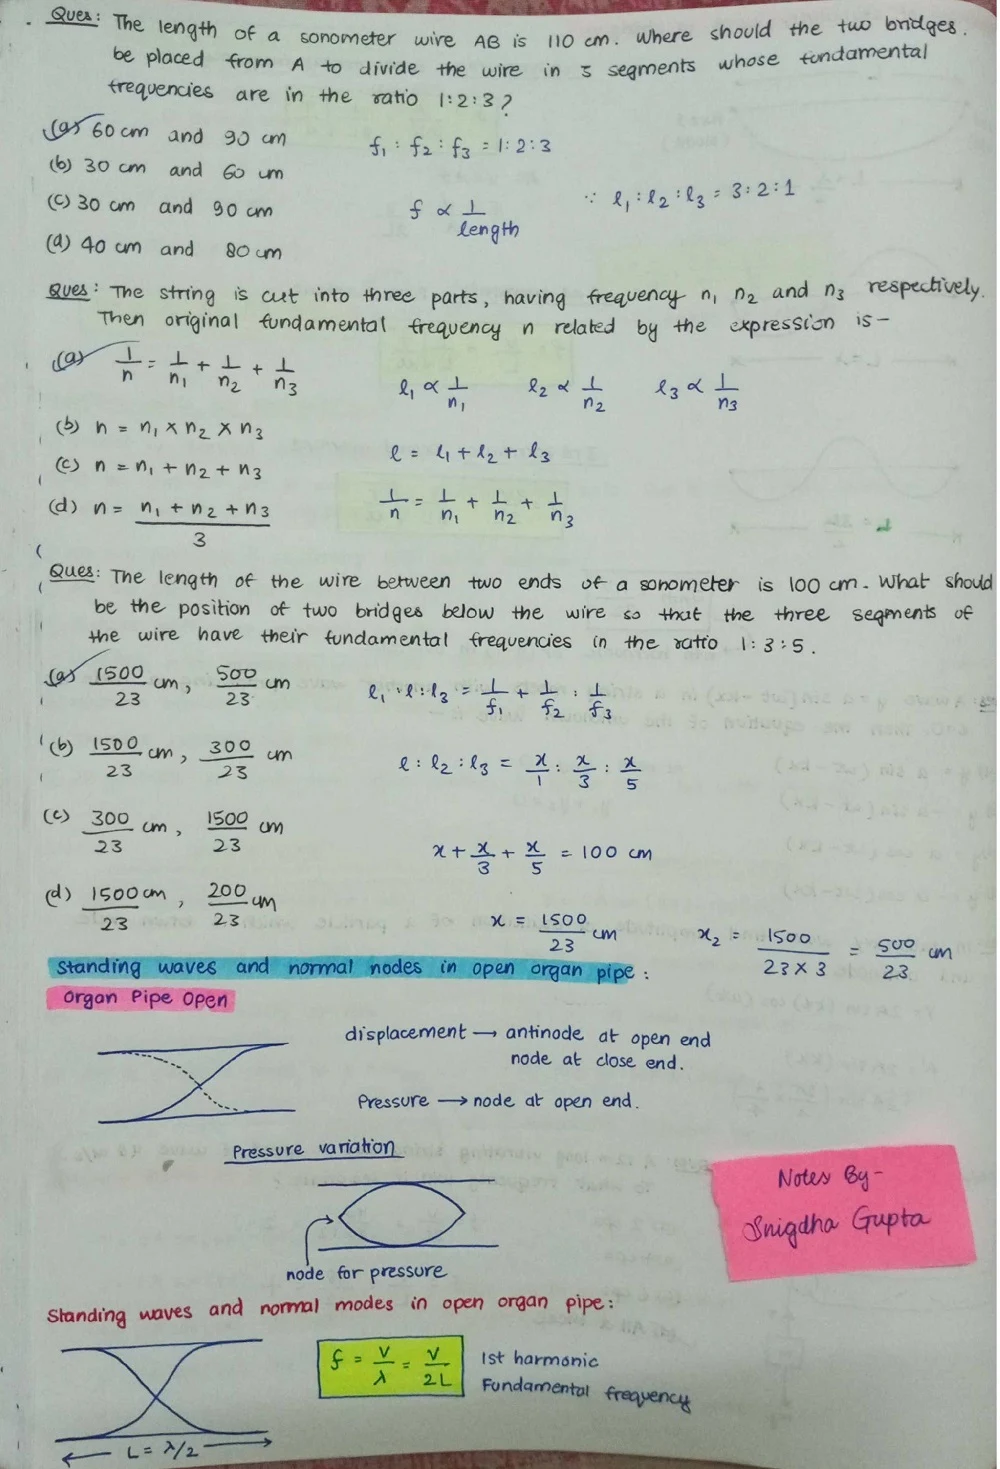 Ques: The length of a sonometer wire AB is 110 cm. Where should the two bridges.
be placed from A to divide the wire in 3 segments whose fundamental
frequencies are in the ratio 1:2:3?
(a) 60 cm and 90 cm
f₁ : f₂ : f₃ = 1:2:3
(b) 30 cm and 60 cm
(c) 30 cm and 90 cm
f ∝ 1/length
∵ ℓ₁ : ℓ₂ : ℓ₃ = 3:2:1
(d) 40 cm and 80 cm
Ques: The string is cut into three parts, having frequency n₁ n₂ and n₃ respectively.
Then original fundamental frequency n related by the expression is –
(a) 1/n = 1/n₁ + 1/n₂ + 1/n₃
ℓ₁ ∝ 1/n₁ ℓ₂ ∝ 1/n₂ ℓ₃ ∝ 1/n₃
(b) n = n₁ × n₂ × n₃
(c) n = n₁ + n₂ + n₃
ℓ = ℓ₁ + ℓ₂ + ℓ₃
(d) n = (n₁ + n₂ + n₃)/3
1/n = 1/n₁ + 1/n₂ + 1/n₃
Ques: The length of the wire between two ends of a sonometer is 100 cm. What should
be the position of two bridges below the wire so that the three segments of
the wire have their fundamental frequencies in the ratio 1:3:5.
(a) 1500/23 cm, 500/23 cm
ℓ₁ : ℓ : ℓ₃ = 1/f₁ + 1/f₂ : 1/f₃
(b) 1500/23 cm, 300/23 cm
ℓ : ℓ₂ : ℓ₃ = x/1 : x/3 : x/5
(c) 300/23 cm, 1500/23 cm
x + x/3 + x/5 = 100 cm
(d) 1500 cm/23, 200/23 cm
x = 1500/23 cm
x₂ = 1500/(23 × 3) = 500/23 cm
Standing waves and normal nodes in open organ pipe :
Organ Pipe Open
displacement → antinode at open end
node at close end.
Pressure → node at open end.
Pressure variation
node for pressure
Notes By –
Snigdha Gupta
Standing waves and normal modes in open organ pipe :
f = V/λ = V/2L
1st harmonic
Fundamental frequency
L = λ/2